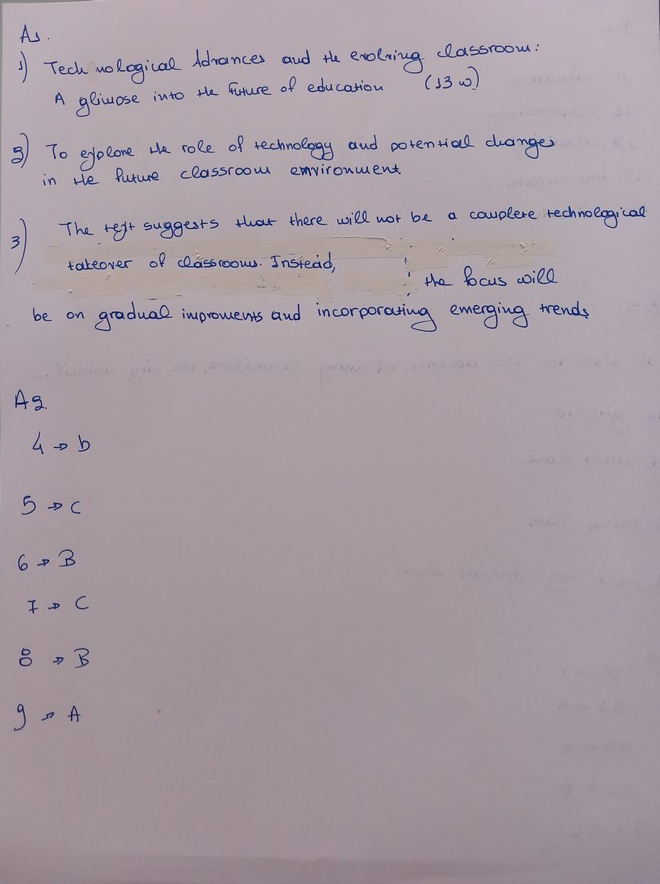 A1.
1) Technological Advances and the evolving classroom:
A glimose into the future of education (13 w)
2) To explore the role of technology and potential changes
in the future classroom environment.
3) The text suggests that there will not be a complete technological
takeover of classrooms. Instead,
the focus will
be on gradual improments and incorporating emerging trends
A2.
4 → b
5 → C
6 → B
7 → C
8 → B
9 → A